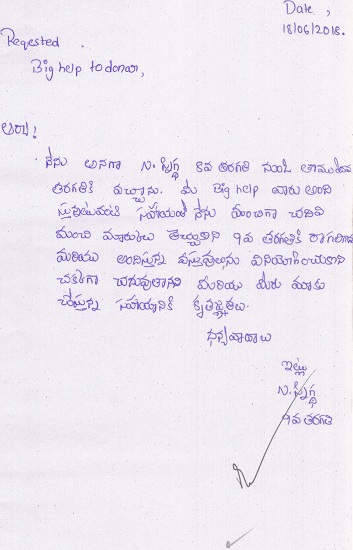 Date ,
18/06/2018.
Reqested
Big help to donar,
అయ్యా!
నేను అనగా N. స్నిగ్ధ 8వ తరగతి నుండి తొమ్మిదవ
తరగతికి వచ్చాను. మీ Big help వారు అంది
స్తున్నటువంటి సహాయంతో నేను మంచిగా చదివి
మంచి మార్కులు తెచ్చుకొని 9వ తరగతికి రాగలిగాను
మరియు అందిస్తున్న వస్తువులను వినియోగించుకొని
చక్కగా చదువుతానని మరియు మీరు మాకు
చేస్తున్న సహాయానికి కృతజ్ఞతలు.
ధన్యవాదాలు
ఇట్లు
N. స్నిగ్ధ
9వ తరగతి